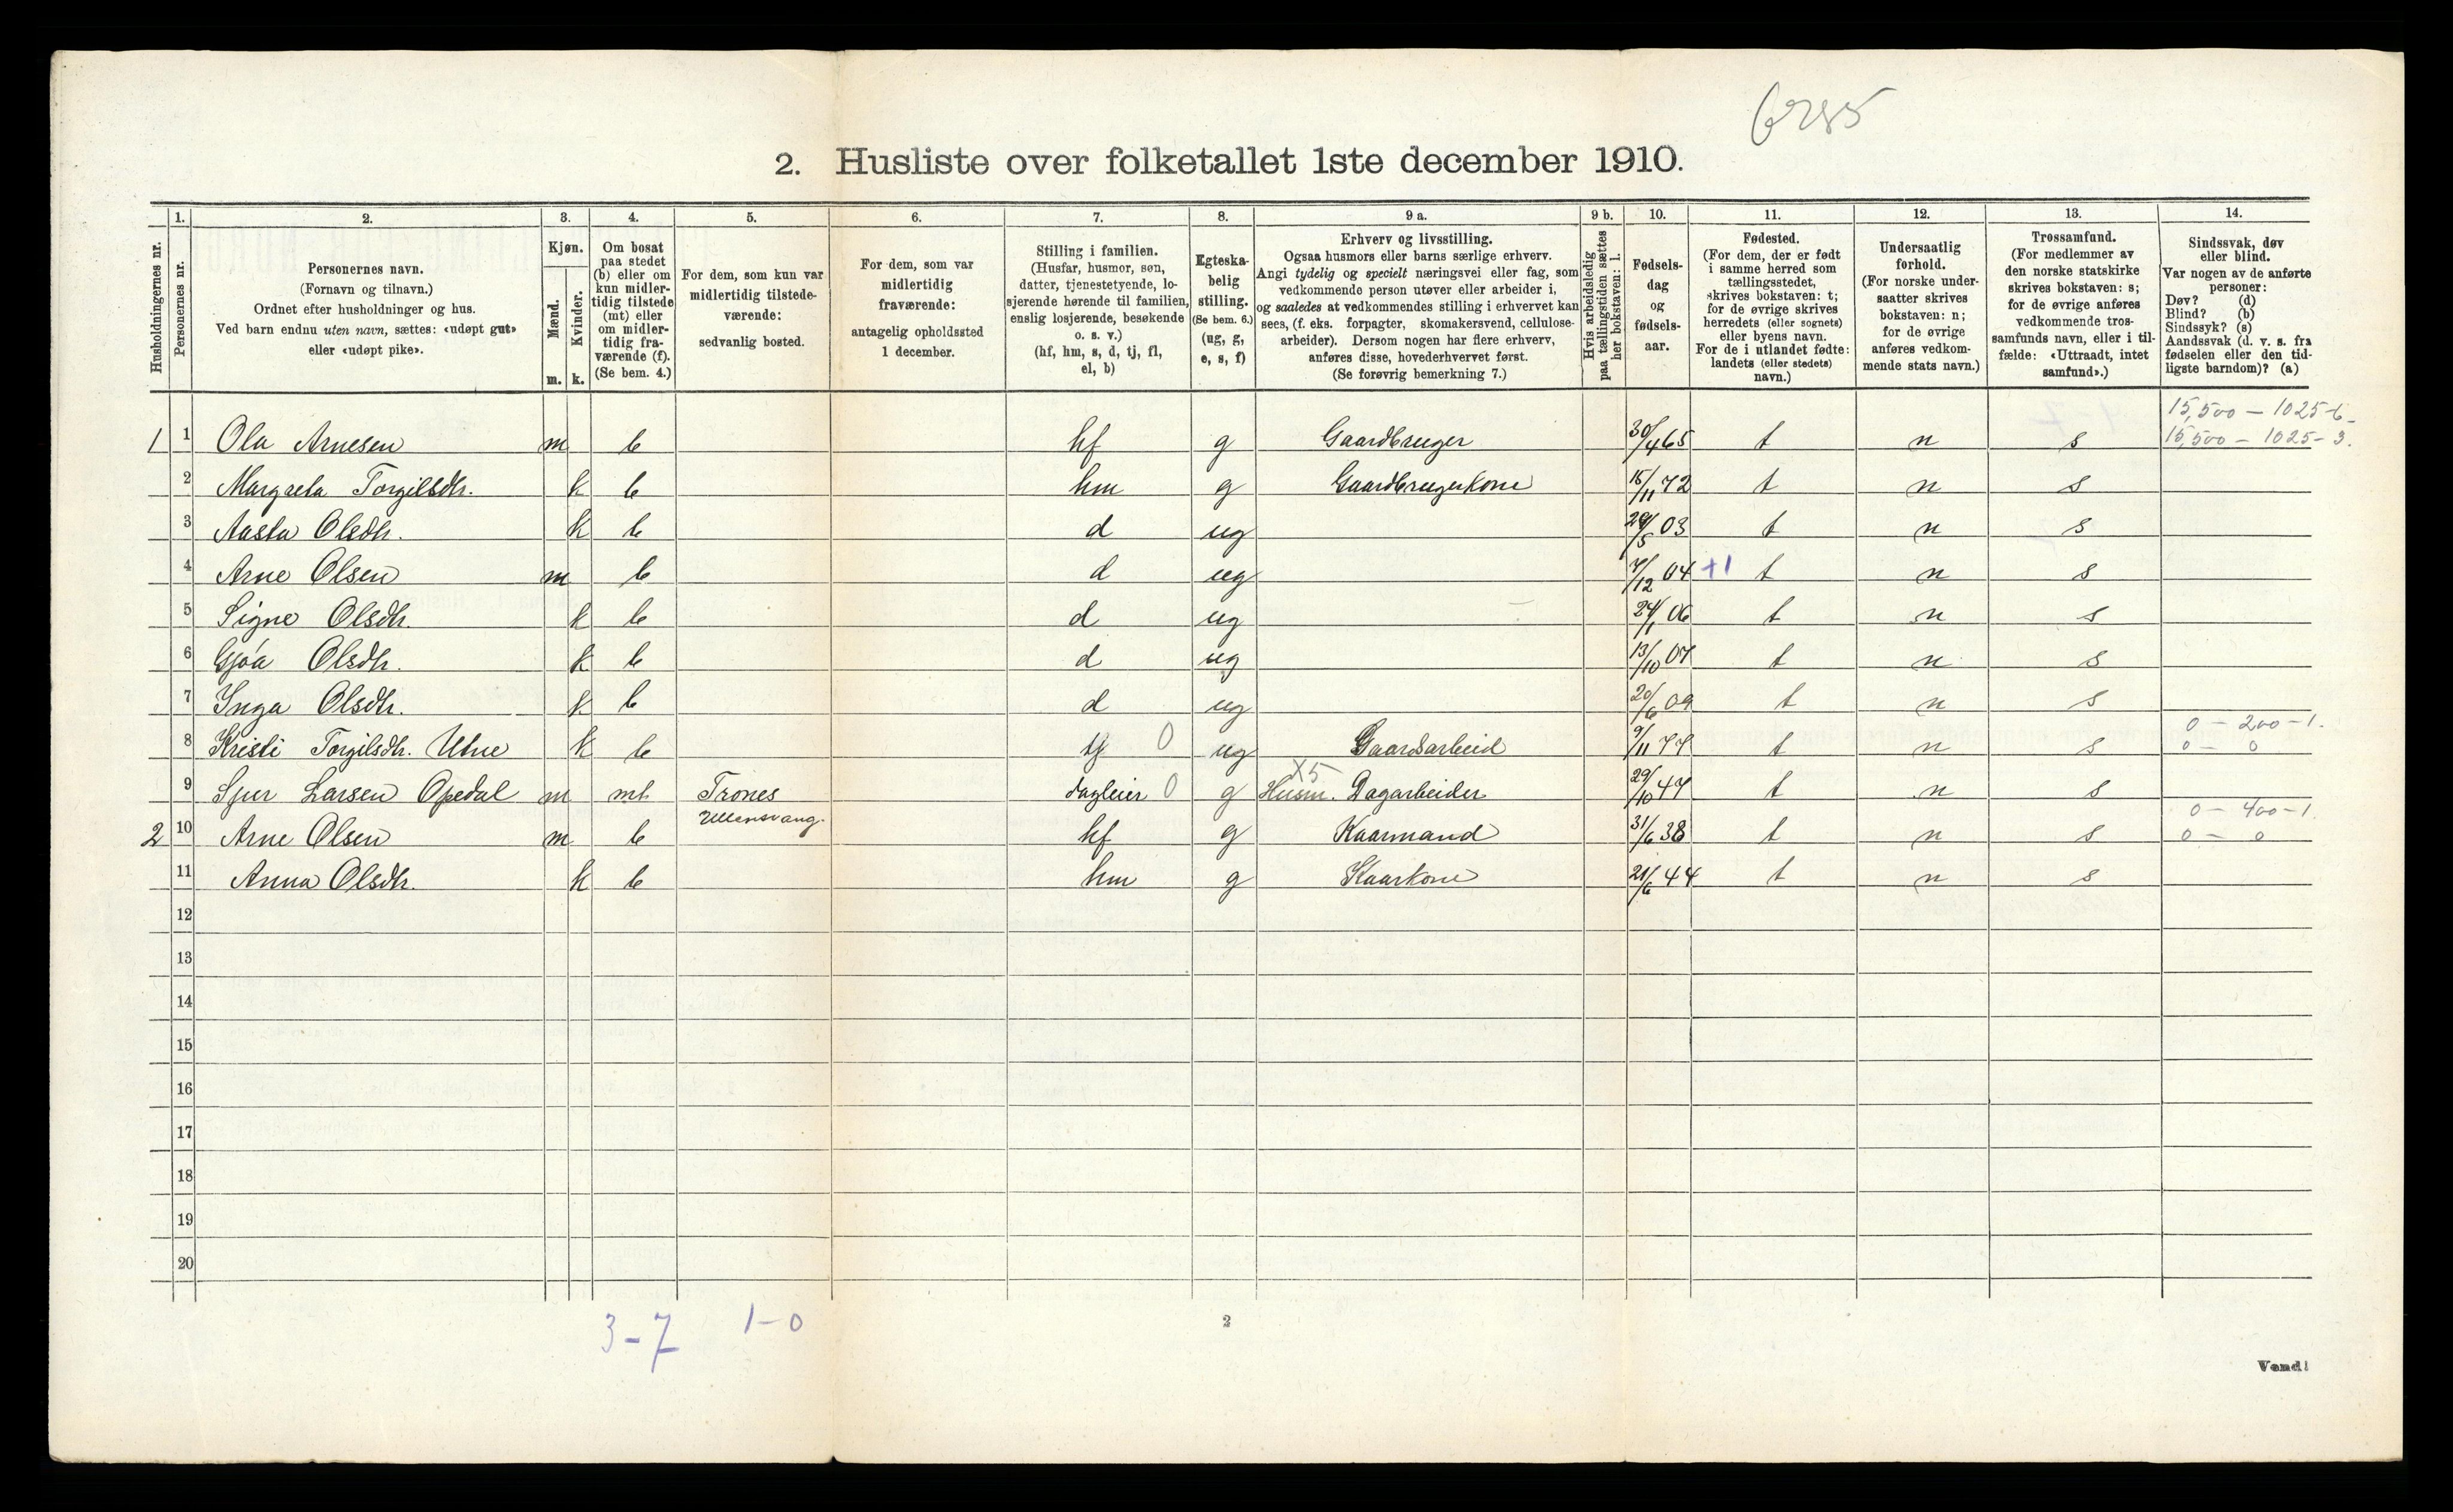 6285
2. Husliste over folketallet 1ste december 1910.
Husholdningernes nr.
1.
Personernes nr.
2.
Personernes navn.
(Fornavn og tilnavn.)
Ordnet efter husholdninger og hus.
Ved barn endnu uten navn, sættes: «udøpt gut»
eller «udøpt pike».
3.
Kjøn.
Mænd.
Kvinder.
m. k.
4.
Om bosat
paa stedet
(b) eller om
kun midler-
tidig tilstede
(mt) eller
om midler-
tidig fra-
værende (f).
(Se bem. 4.)
5.
For dem, som kun var
midlertidig tilstede-
værende:
sedvanlig bosted.
6.
For dem, som var
midlertidig
fraværende:
antagelig opholdssted
1 december.
7.
Stilling i familien.
(Husfar, husmor, søn,
datter, tjenestetyende, lo-
sjerende hørende til familien,
enslig losjerende, besøkende
o. s. v.)
(hf, hm, s, d, tj, fl,
el, b)
8.
Egteska-
belig
stilling.
(Se bem. 6.)
(ug, g,
e, s, f)
9 a.
Erhverv og livsstilling.
Ogsaa husmors eller barns særlige erhverv.
Angi tydelig og specielt næringsvei eller fag, som
vedkommende person utøver eller arbeider i,
og saaledes at vedkommendes stilling i erhvervet kan
sees, (f. eks. forpagter, skomakersvend, cellulose-
arbeider). Dersom nogen har flere erhverv,
anføres disse, hovederhvervet først.
(Se forøvrig bemerkning 7.)
9 b.
Hvis arbeidsledig
paa tællingstiden sættes
her bokstaven: l.
10.
Fødsels-
dag
og
fødsels-
aar.
11.
Fødested.
(For dem, der er født
i samme herred som
tællingsstedet,
skrives bokstaven: t;
for de øvrige skrives
herredets (eller sognets)
eller byens navn.
For de i utlandet fødte:
landets (eller stedets)
navn.)
12.
Undersaatlig
forhold.
(For norske under-
saatter skrives
bokstaven: n;
for de øvrige
anføres vedkom-
mende stats navn.)
13.
Trossamfund.
(For medlemmer av
den norske statskirke
skrives bokstaven: s;
for de øvrige anføres
vedkommende tros-
samfunds navn, eller i til-
fælde: «Uttraadt, intet
samfund».)
14.
Sindssvak, døv
eller blind.
Var nogen av de anførte
personer:
Døv? (d)
Blind? (b)
Sindssyk? (s)
Aandssvak (d. v. s. fra
fødselen eller den tid-
ligste barndom)? (a)
15,500 – 1025-6
1 1 Ola Arnesen m b hf g Gaardbruger 30/4 65 t n s 15,500 – 1025-3.
2 Margreta Torgilsdtr. k b hm g Gaardbrugerkone 15/11 72 t n s
3 Aasta Olsdtr. k b d ug 29/5 03 t n s
4 Arne Olsen m b d ug 7/12 04 +1 t n s
5 Signe Olsdtr. k b d ug 24/1 06 t n s
6 Gjøa Olsdtr. k b d ug 13/10 07 t n s
7 Inga Olsdtr. k b d ug 20/6 09 t n s
0 – 200 – 1.
8 Kristi Torgilsdtr. Utne k b tj 0 ug Gaardsarbeid 9/11 77 t n s 0 – 0
X5
9 Sjur Larsen Opedal m mt Trones dagleier 0 g Husm. Dagarbeider 29/10 47 t n s
Ullensvang. 0 – 400 – 1.
2 10 Arne Olsen m b hf g Kaarmand 31/6 38 t n s 0 – 0
11 Anna Olsdtr. k b hm g Kaarkone 21/6 44 t n s
12
13
14
15
16
17
18
19
20
3 – 7 1 – 0
2
Vend!